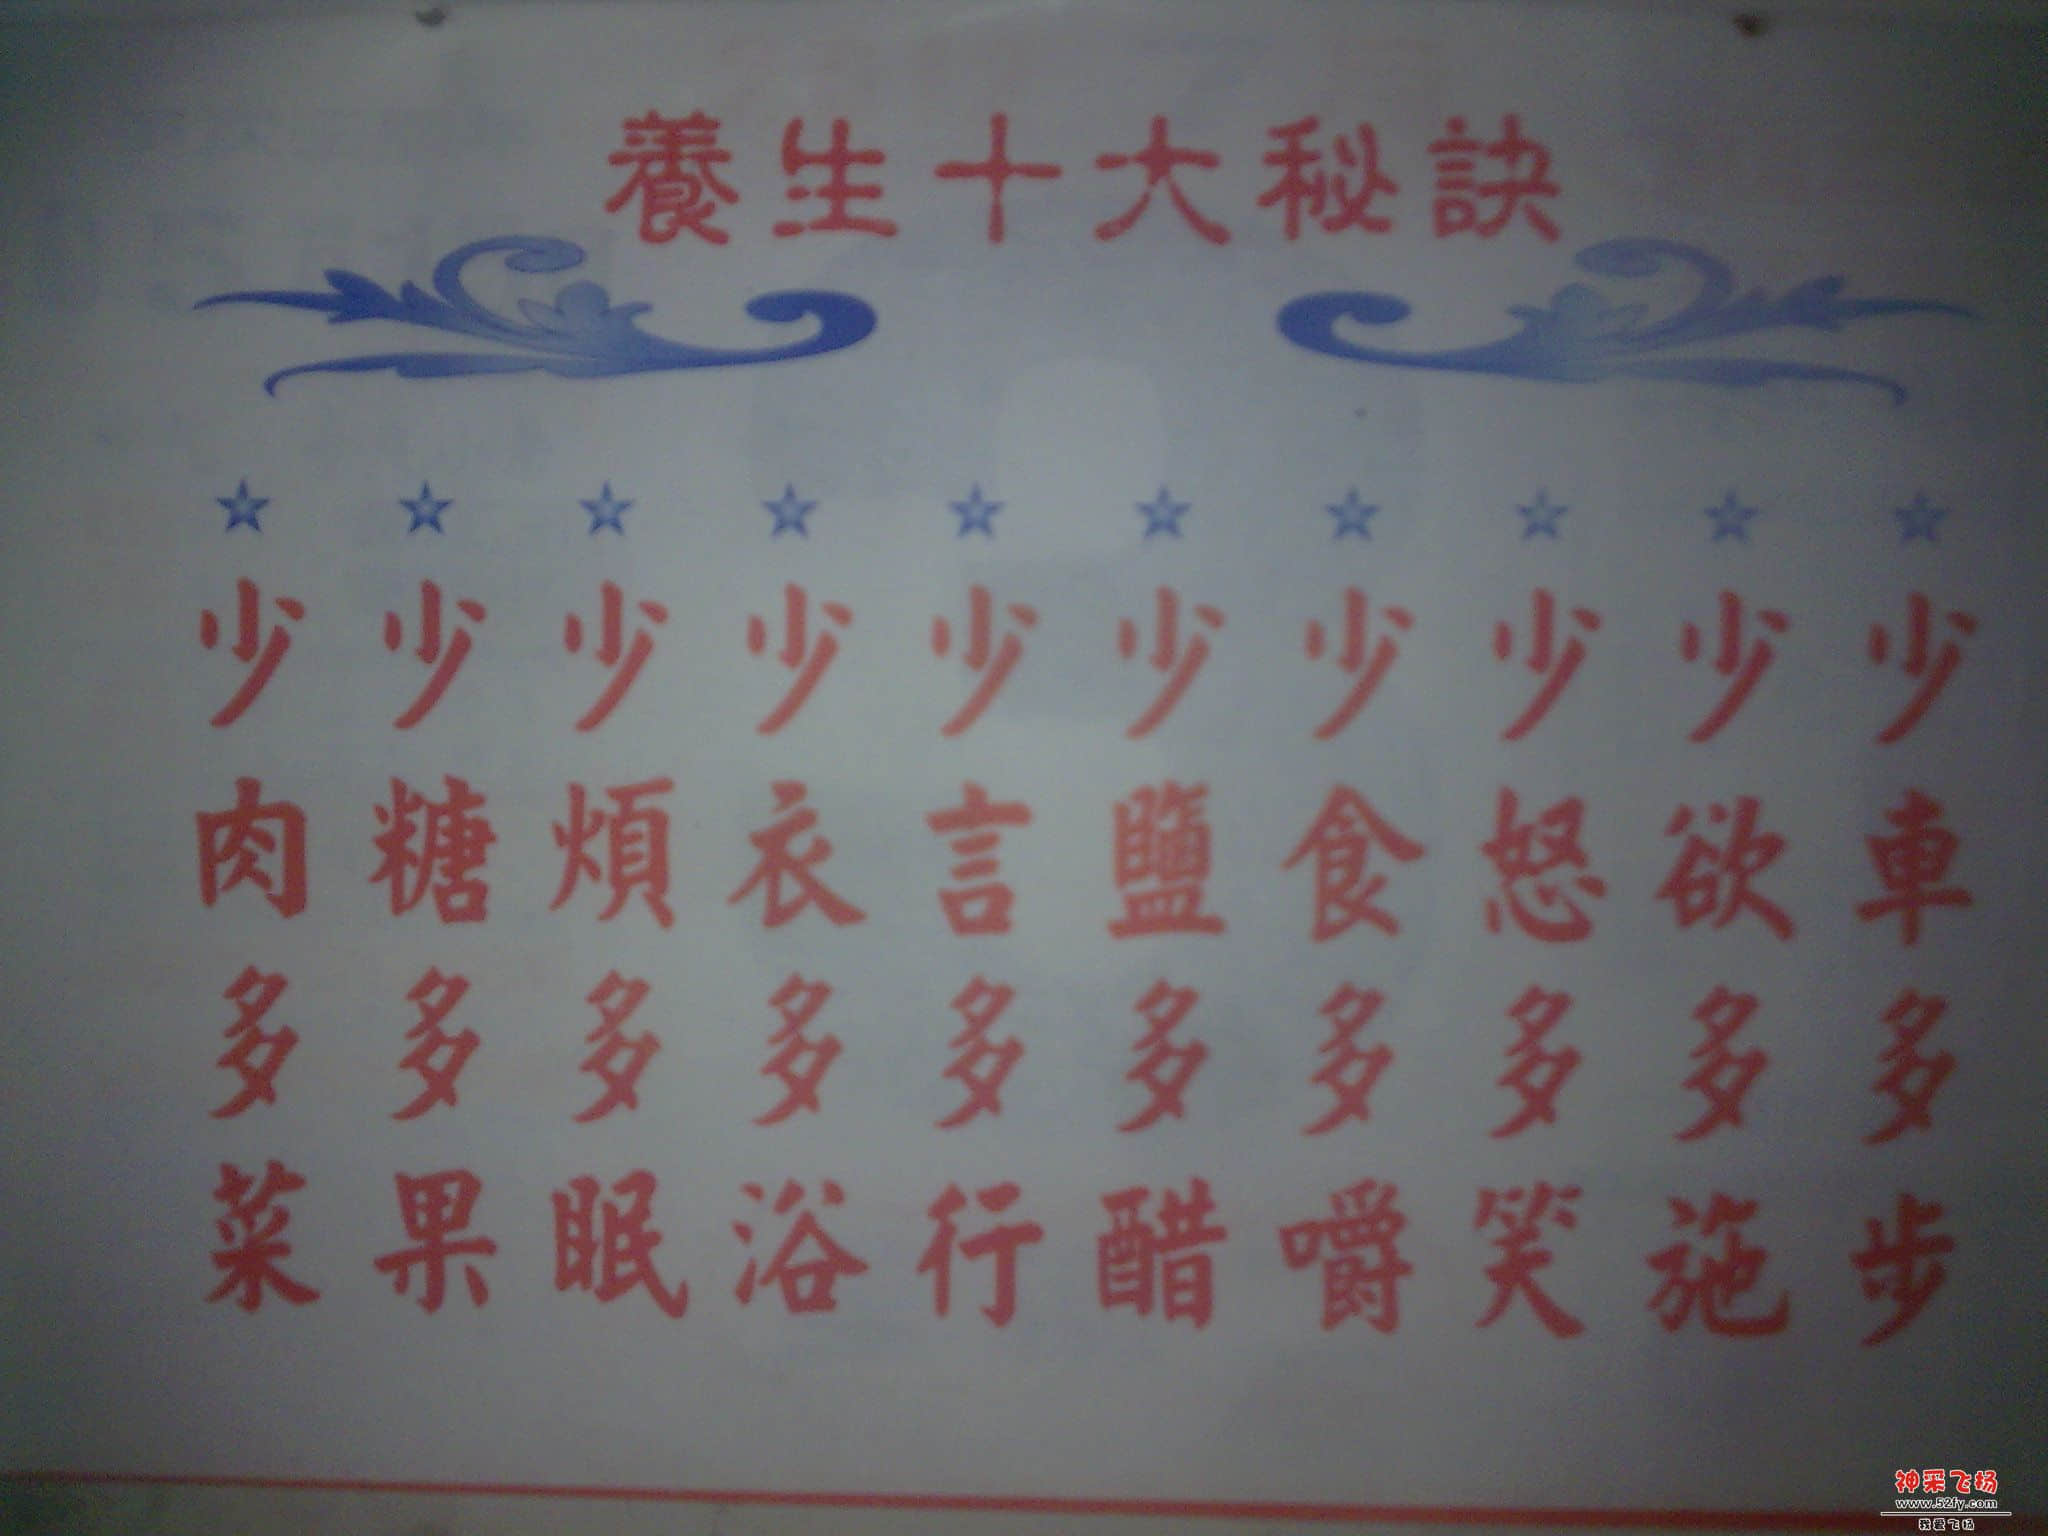 養生十大秘訣
少肉多菜
少糖多果
少煩多眠
少衣多浴
少言多行
少鹽多醋
少食多嚼
少怒多笑
少欲多施
少車多步
神采飞扬
www.52fy.com
我爱飞扬